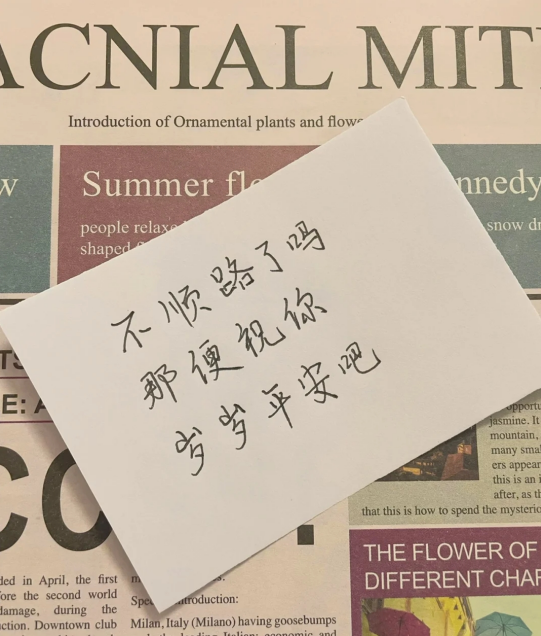 ACNIAL MIT
Introduction of Ornamental plants and flowe
w
Summer flo
nnedy
people relaxe
shaped
snow dr
不顺路了吗
那便祝你
岁岁平安吧
E: A
CO
opportu
jasmine. It
mountain,
many smal
ers appear
this is an i
after, as th
that this is how to spend the mysterio
THE FLOWER OF
DIFFERENT CHAR
ded in April, the first
fore the second world
damage, during the
ction. Downtown club
Spec
troduction:
Milan, Italy (Milano) having goosebumps